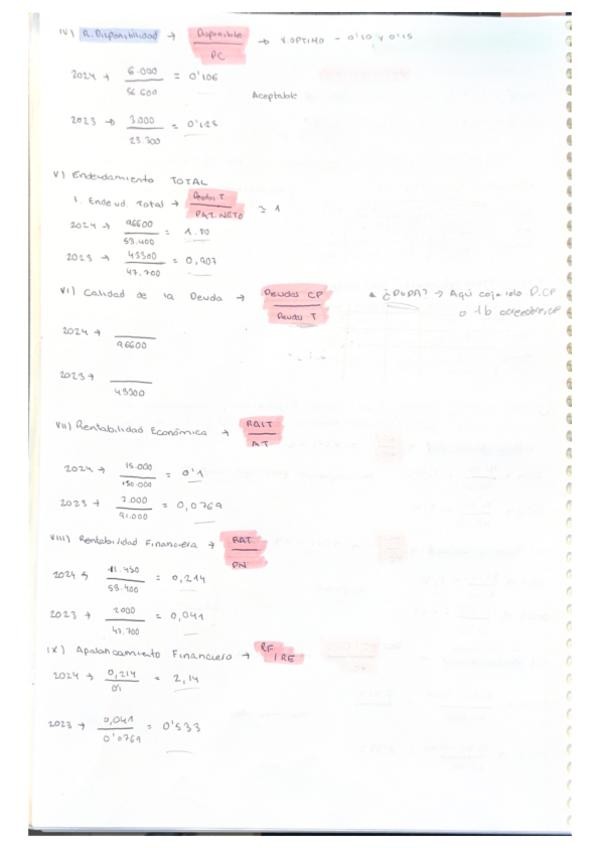 IV) R. Disponibilidad → Disponible / PC → V. OPTIMO - 0'10 y 0'15
2024 → 6.000 / 56 600 = 0'106
Aceptable
2023 → 3.000 / 23.300 = 0'128
V) Endeudamiento TOTAL
1. Endeud. Total → Deudas T / PAT. NETO ≥ 1
2024 → 96600 / 53.400 = 1.80
2023 → 43300 / 47.700 = 0,907
VI) Calidad de la Deuda → Deudas CP / Deudas T • ¿DUDA? → Aquí cojo solo D.CP
2024 → / 96600
2023 → / 43300
VII) Rentabilidad Económica → RAIT / AT
2024 → 15.000 / 150.000 = 0'1
2023 → 7.000 / 91.000 = 0,0769
VIII) Rentabilidad Financiera → RAT / PN
2024 → 11.450 / 53.400 = 0,214
2023 → 2000 / 47.700 = 0,041
IX) Apalancamiento Financiero → RF / RE
2024 → 0,214 / 0'1 = 2,14
2023 → 0,041 / 0'0769 = 0'533